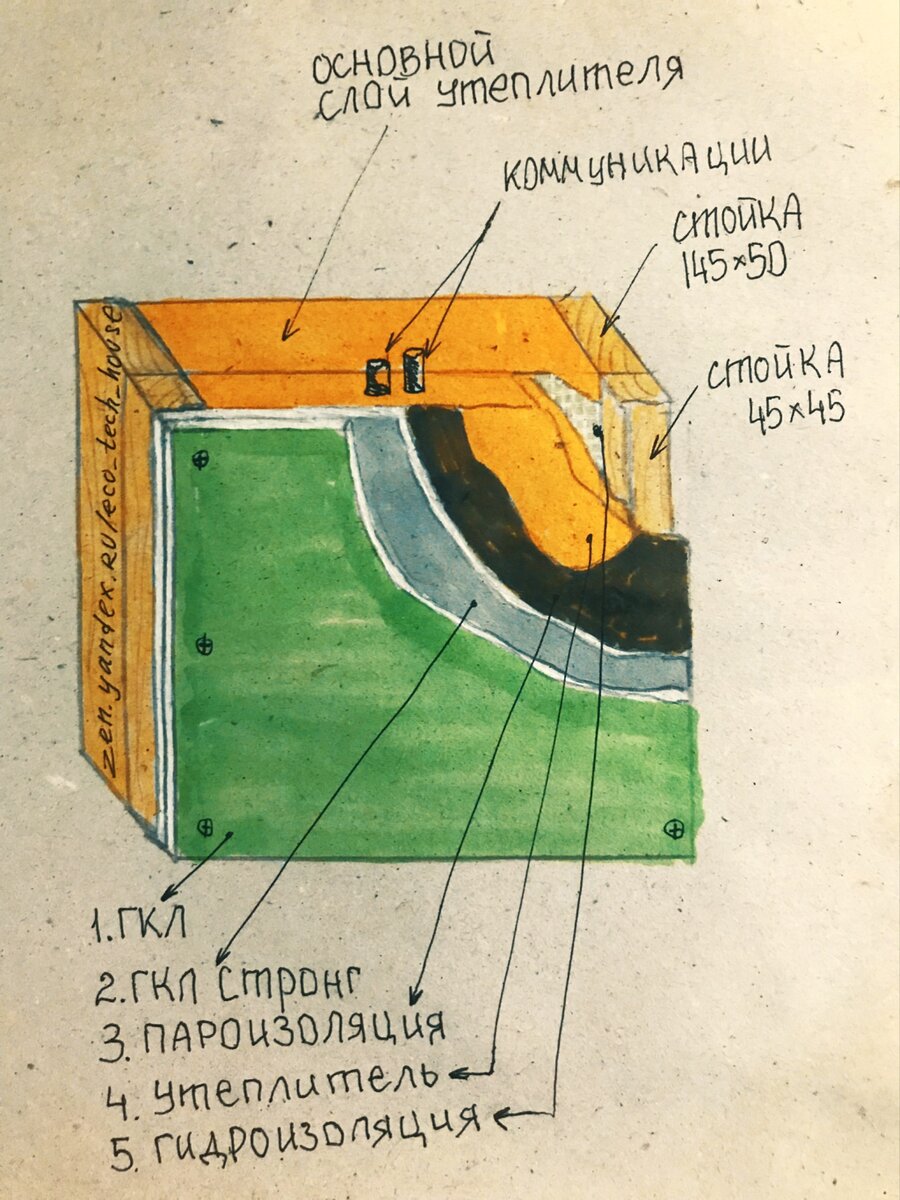 ОСНОВНОЙ
СЛОЙ УТЕПЛИТЕЛЯ
КОММУНИКАЦИИ
СТОЙКА
145×50
СТОЙКА
45×45
zen.yandex.ru/eco_tech_house
1. ГКЛ
2. ГКЛ СТРОНГ
3. ПАРОИЗОЛЯЦИЯ
4. УТЕПЛИТЕЛЬ
5. ГИДРОИЗОЛЯЦИЯ